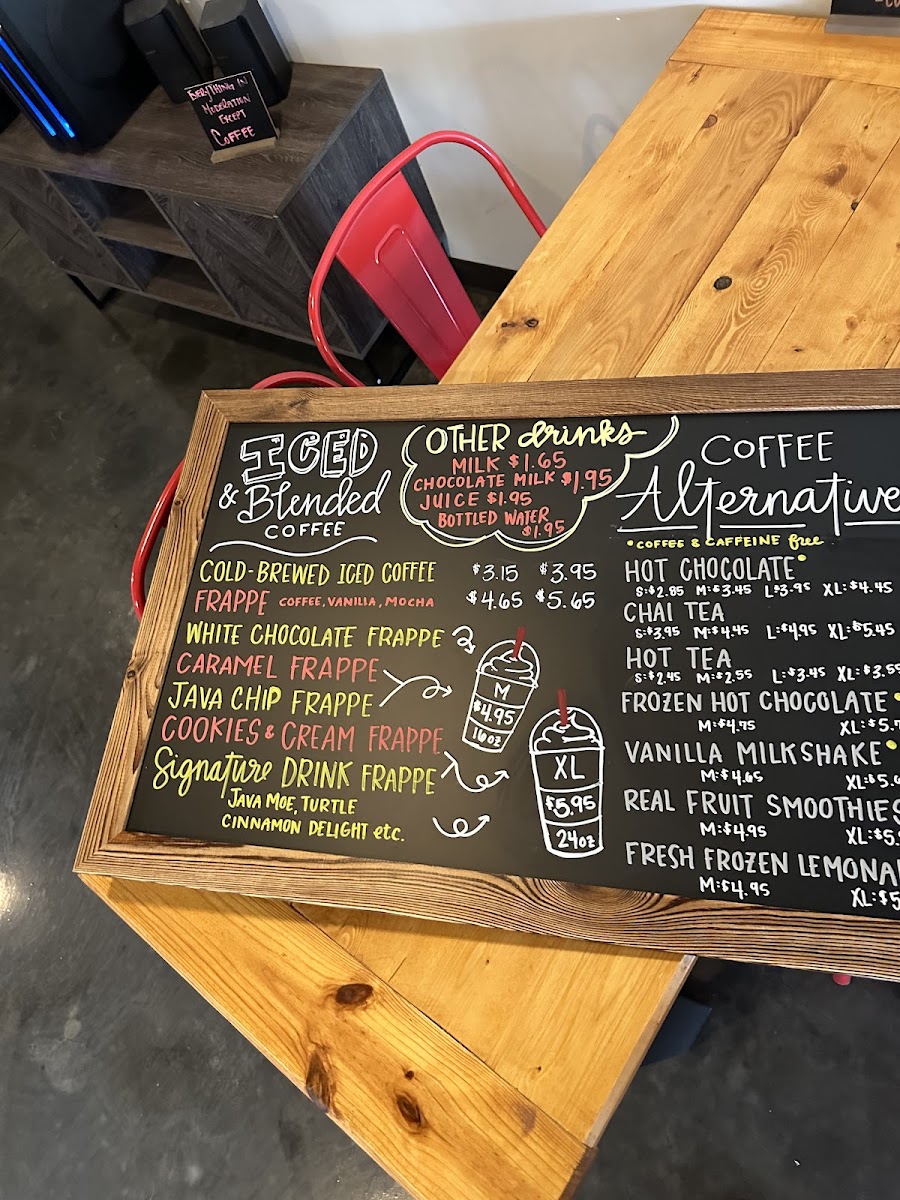 EVERYTHING IN
MODERATION
EXCEPT
COFFEE
ICED
& Blended
COFFEE
OTHER drinks
MILK $1.65
CHOCOLATE MILK $1.95
JUICE $1.95
BOTTLED WATER
$1.95
COLD-BREWED ICED COFFEE $3.15 $3.95
FRAPPE COFFEE, VANILLA, MOCHA $4.65 $5.65
WHITE CHOCOLATE FRAPPE
CARAMEL FRAPPE
JAVA CHIP FRAPPE
COOKIES & CREAM FRAPPE
Signature DRINK FRAPPE
JAVA MOE, TURTLE
CINNAMON DELIGHT etc.
M
$4.95
16oz
XL
$5.95
24oz
COFFEE
Alternative
•COFFEE & CAFFEINE free
HOT CHOCOLATE•
S:$2.85 M:$3.45 L:$3.95 XL:$4.45
CHAI TEA
S:$3.95 M:$4.45 L:$4.95 XL:$5.45
HOT TEA
S:$2.45 M:$2.55 L:$3.45 XL:$3.55
FROZEN HOT CHOCOLATE•
M:$4.75 XL:$5.
VANILLA MILKSHAKE•
M:$4.65 XL:$5.
REAL FRUIT SMOOTHIES
M:$4.95 XL:$5.
FRESH FROZEN LEMONA
M:$4.95 XL:$5